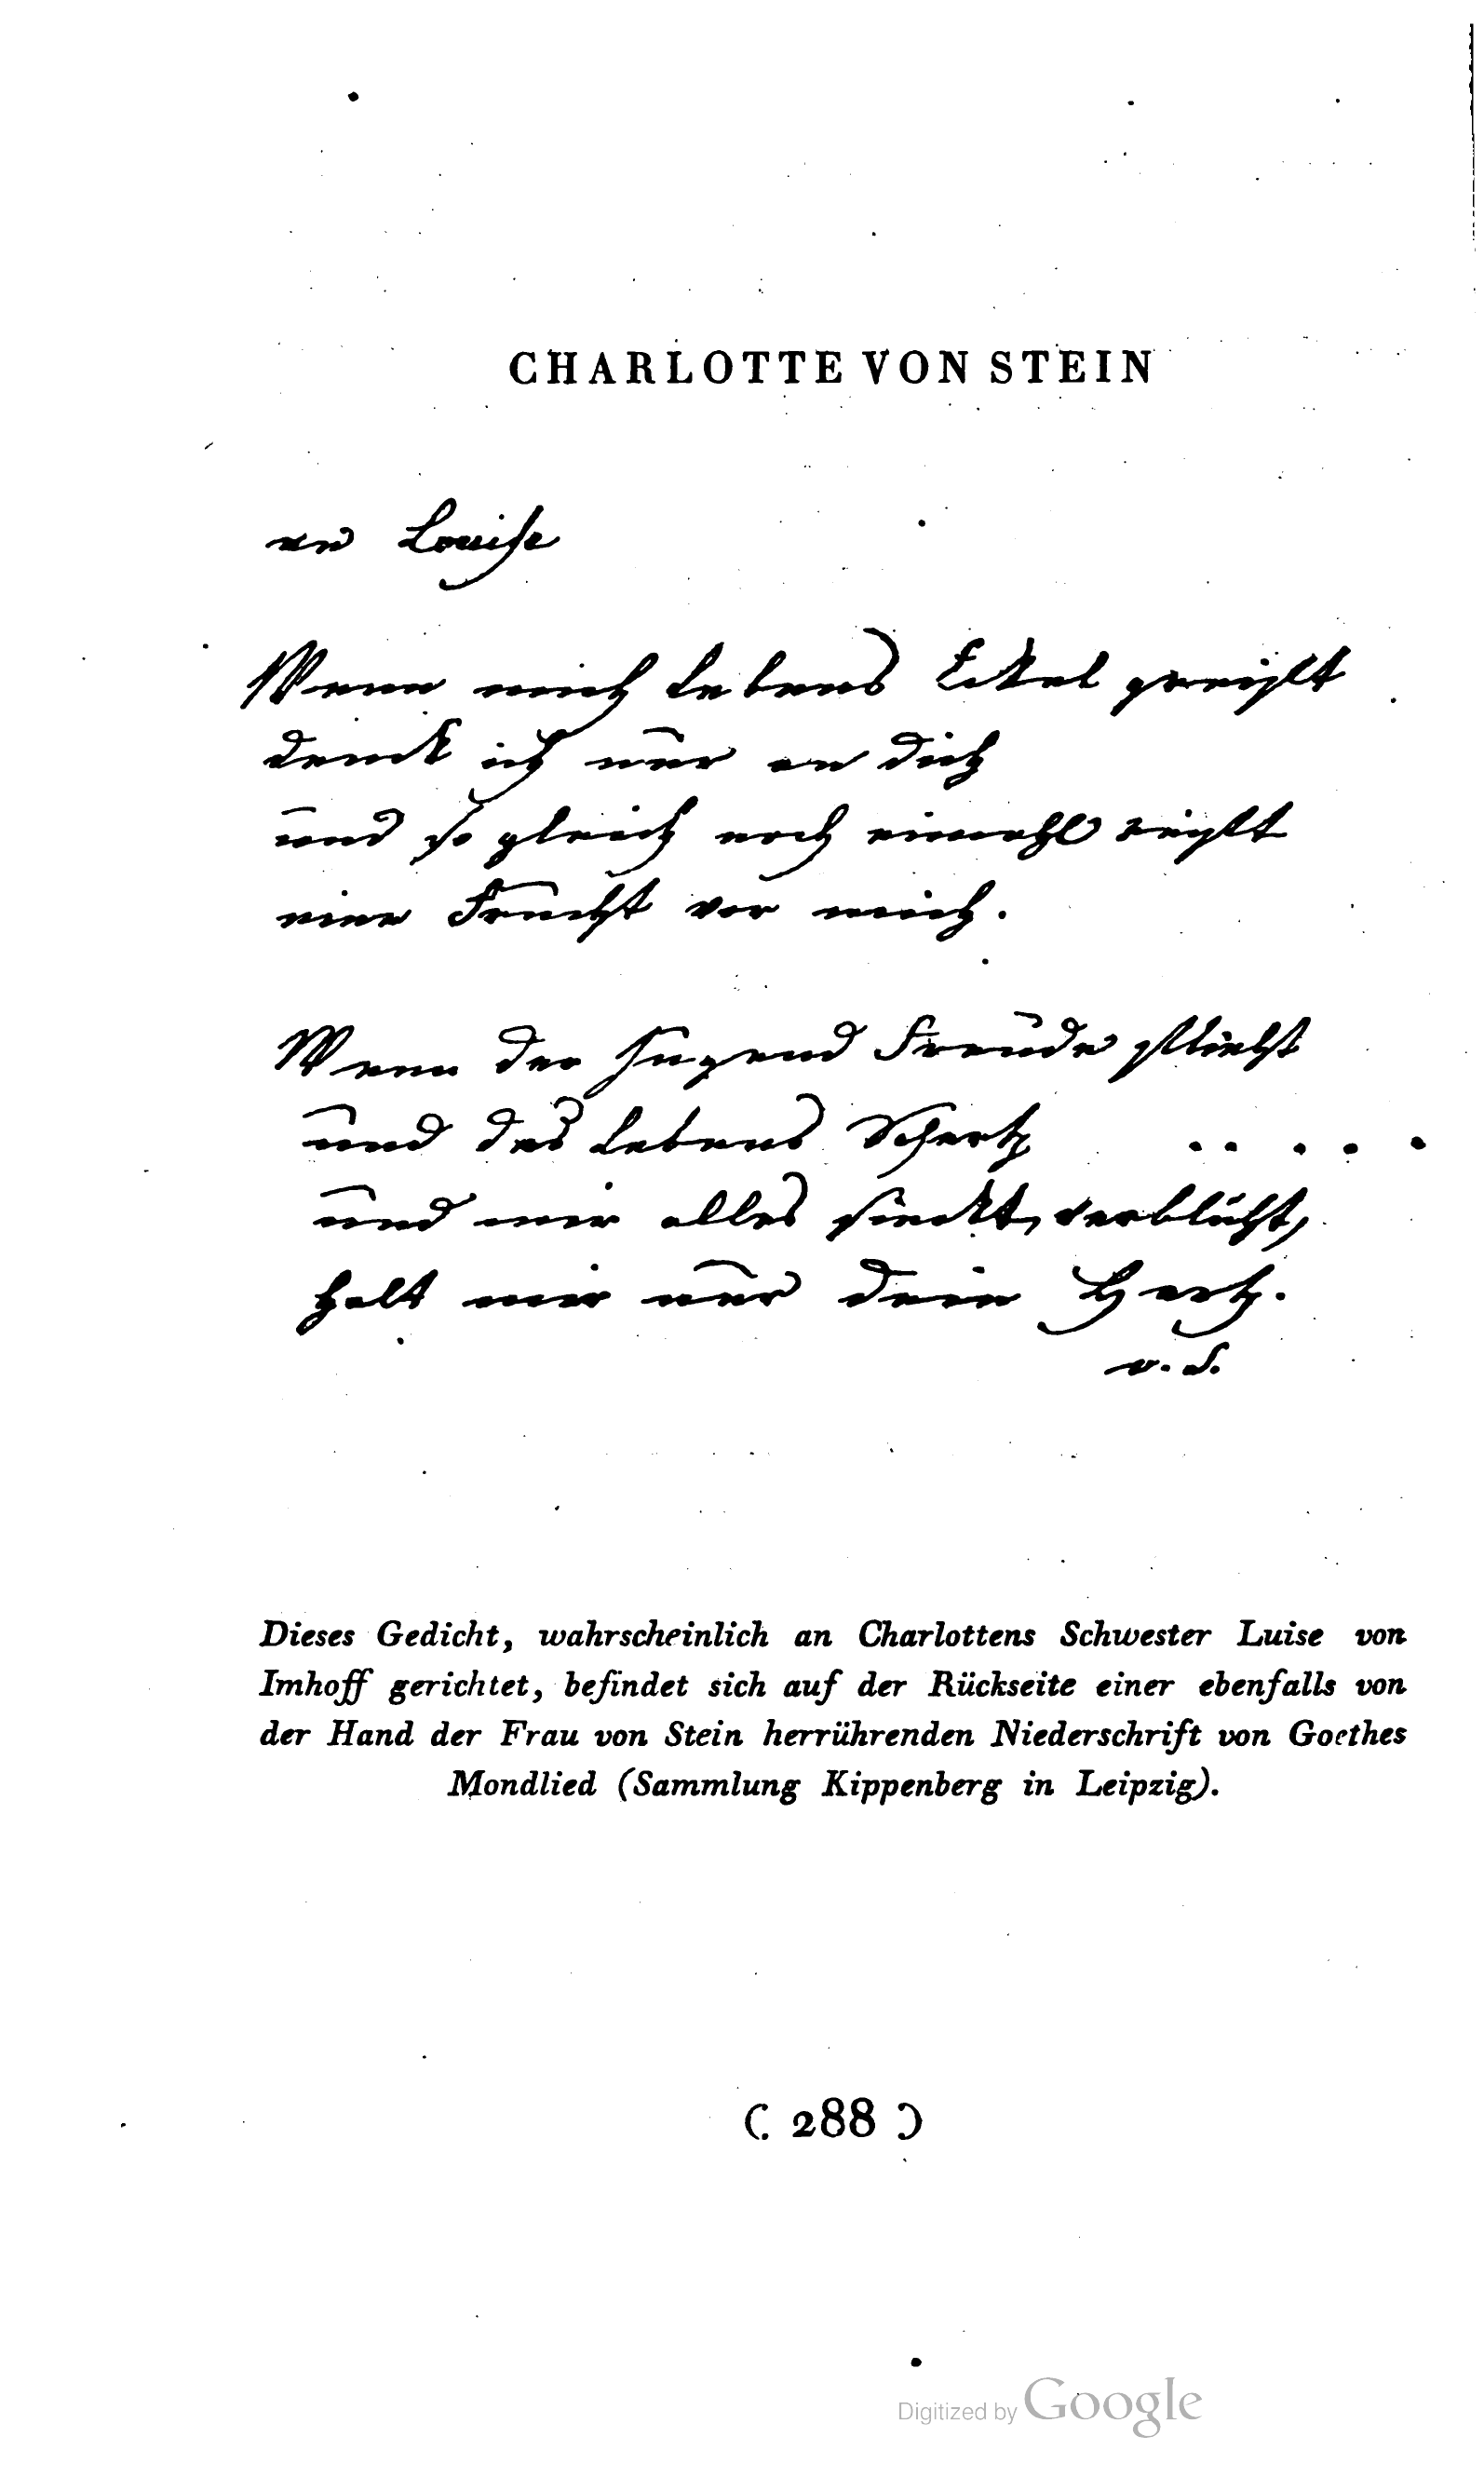 CHARLOTTE VON STEIN
an Louise
Wenn mich Lebens Eckel greifft
denck ich nur an dich
und so gleich noch einmahl reifft
eine Frucht vor mich.
Wenn der Jugend Freude flieht
und des Lebens Schertz
und mir alles sinckt, verblüht,
halt mir nur dein Hertz.
v. S.
Dieses Gedicht, wahrscheinlich an Charlottens Schwester Luise von
Imhoff gerichtet, befindet sich auf der Rückseite einer ebenfalls von
der Hand der Frau von Stein herrührenden Niederschrift von Goethes
Mondlied (Sammlung Kippenberg in Leipzig).
( 288 )
Digitized by Google